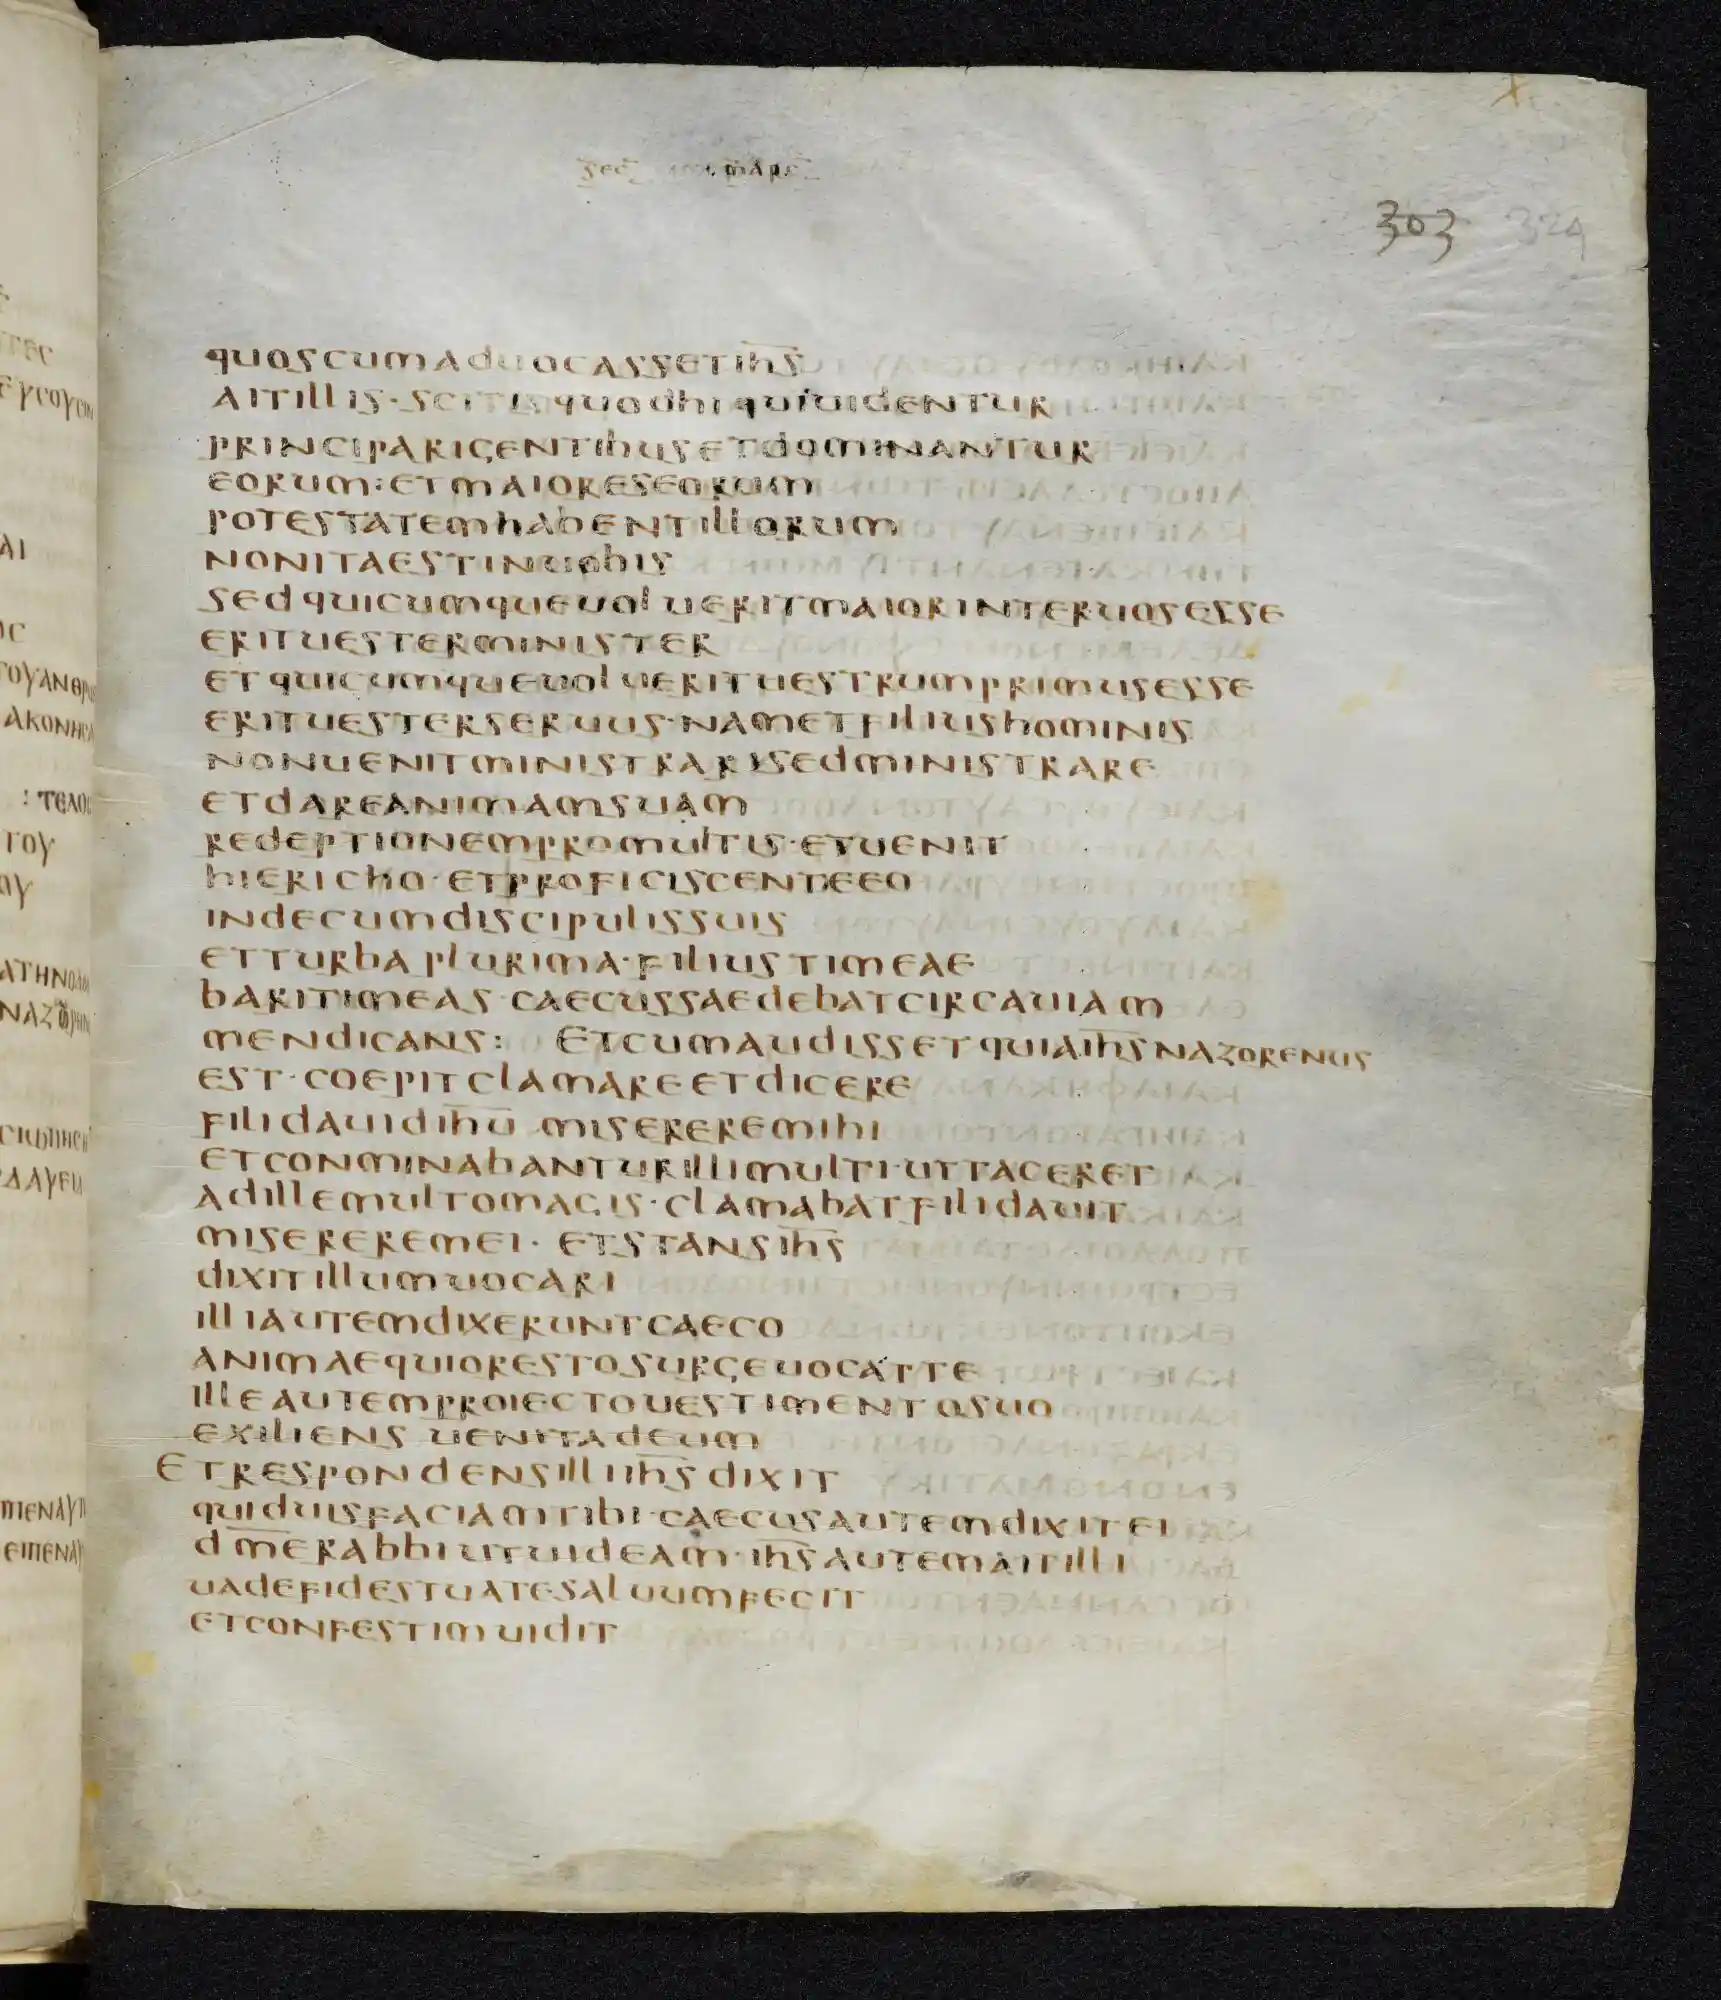 sec marc
303 324
quoscumaduocassetihs
aitillis·scitisquodhiquiuidentur
principarigentibusetdominantur
eorum:etmaioreseorum
potestatemhabentillorum
nonitaestinuobis
sedquicumqueuolueritmaiorinteruosesse
erituesterminister
etquicumqueuoluerituestrumprimusesse
erituesterseruus·nametfiliushominis
nonuenitministrarisedministrare
etdareanimamsuam
redeptionempromultis·etuenit
hiericho·etproficiscenteeo
indecumdiscipulissuis
etturbaplurima·filiustimeae
baritimeas·caecussaedebatcircauiam
mendicans: Etcumaudissetquiaihsnazorenus
est·coepitclamareetdicere
filidauidihu misereremihi
etconminabanturillimulti·uttaceret
adillemultomagis·clamabatfilidauit
misereremei· etstansihs
dixitillumuocari
illiautemdixeruntcaeco
animaequiorestosurgeuocatte
illeautemproiectouestimentosuo
exiliens uenitadeum
Etrespondensilliihsdixit
quiduisfaciamtibi·caecusautemdixitei
dmerabbiutuideam·ihsautemaitilli
uadefidestuatesaluumfecit
etconfestimuidit